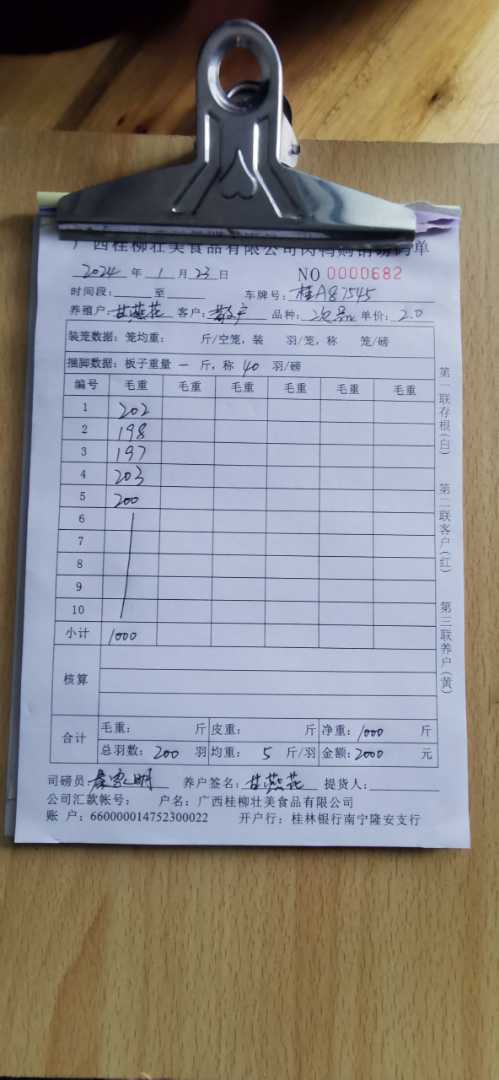 广西桂柳壮美食品有限公司肉鸭购销磅码单
2024 年 1 月 23 日 NO 0000682
时间段: 至 车牌号: 桂A87545
养殖户: 甘燕花 客户: 散户 品种: 次品 单价: 2.0
装笼数据: 笼均重: 斤/空笼, 装 羽/笼, 称 笼/磅
捆脚数据: 板子重量 一 斤, 称 40 羽/磅
编号 毛重 毛重 毛重 毛重 毛重 毛重
1 202
2 198
3 197
4 203
5 200
6
7
8
9
10
小计 1000
核算
合计 毛重: 斤 皮重: 斤 净重: 1000 斤
总羽数: 200 羽 均重: 5 斤/羽 金额: 2000 元
司磅员: 养户签名: 甘燕花 提货人:
公司汇款帐号: 户名: 广西桂柳壮美食品有限公司
账 户: 660000014752300022 开户行: 桂林银行南宁隆安支行
第一联存根(白)
第二联客户(红)
第三联养户(黄)